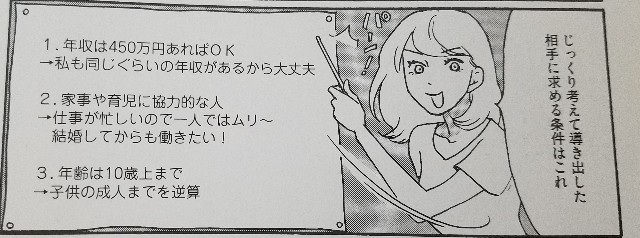 じっくり考えて導き出した
相手に求める条件はこれ
1．年収は450万円あればOK
→私も同じぐらいの年収があるから大丈夫
2．家事や育児に協力的な人
→仕事が忙しいので一人ではムリ～
結婚してからも働きたい！
3．年齢は10歳上まで
→子供の成人までを逆算